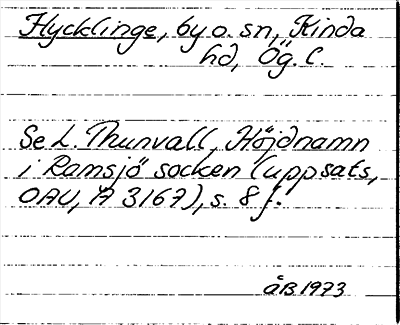 Hycklinge, by o. sn, Kinda
hd, Ög. l.
Se L. Thunvall, Höjdnamn
i Ramsjö socken (uppsats,
OAU, Ä 3167), s. 8 f.
åB 1973